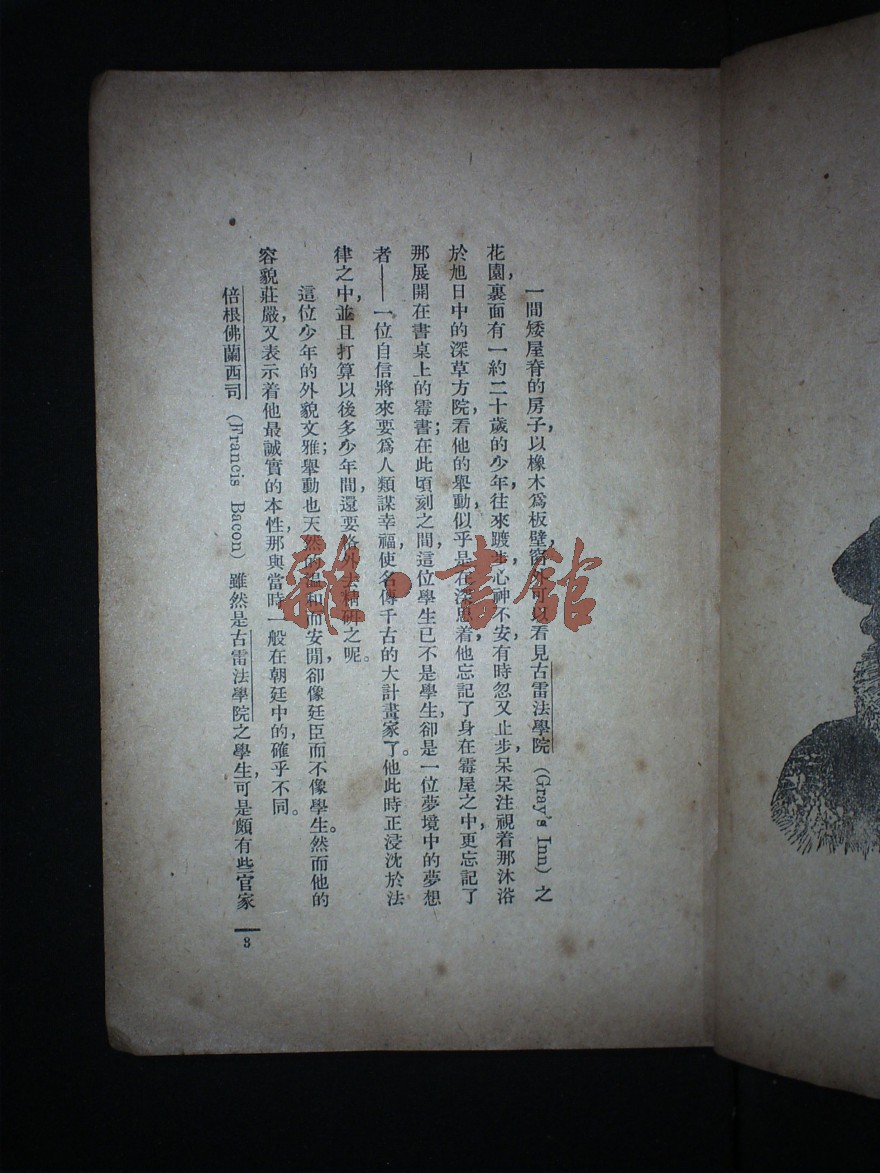 一間矮屋脊的房子，以橡木爲板壁，窗外可以看見古雷法學院（Gray's Inn）之
花園，裏面有一約二十歲的少年，往來踱步，心神不安，有時忽又止步，呆呆注視着那沐浴
於旭日中的深草方院，看他的舉動，似乎是在深思着，他忘記了身在霉屋之中，更忘記了
那展開在書桌上的霉書；在此頃刻之間，這位學生已不是學生，卻是一位夢境中的夢想
者——一位自信將來要爲人類謀幸福，使名傳千古的大計畫家了。他此時正浸沈於法
律之中，並且打算以後多少年間，還要格外去精研之呢。
這位少年的外貌文雅；舉動也天然的溫和而安閒，卻像廷臣而不像學生。然而他的
容貌莊嚴，又表示着他最誠實的本性，那與當時一般在朝廷中的，確乎不同。
倍根佛蘭西司（Francis Bacon）雖然是古雷法學院之學生，可是頗有些官家
3
雜·書館